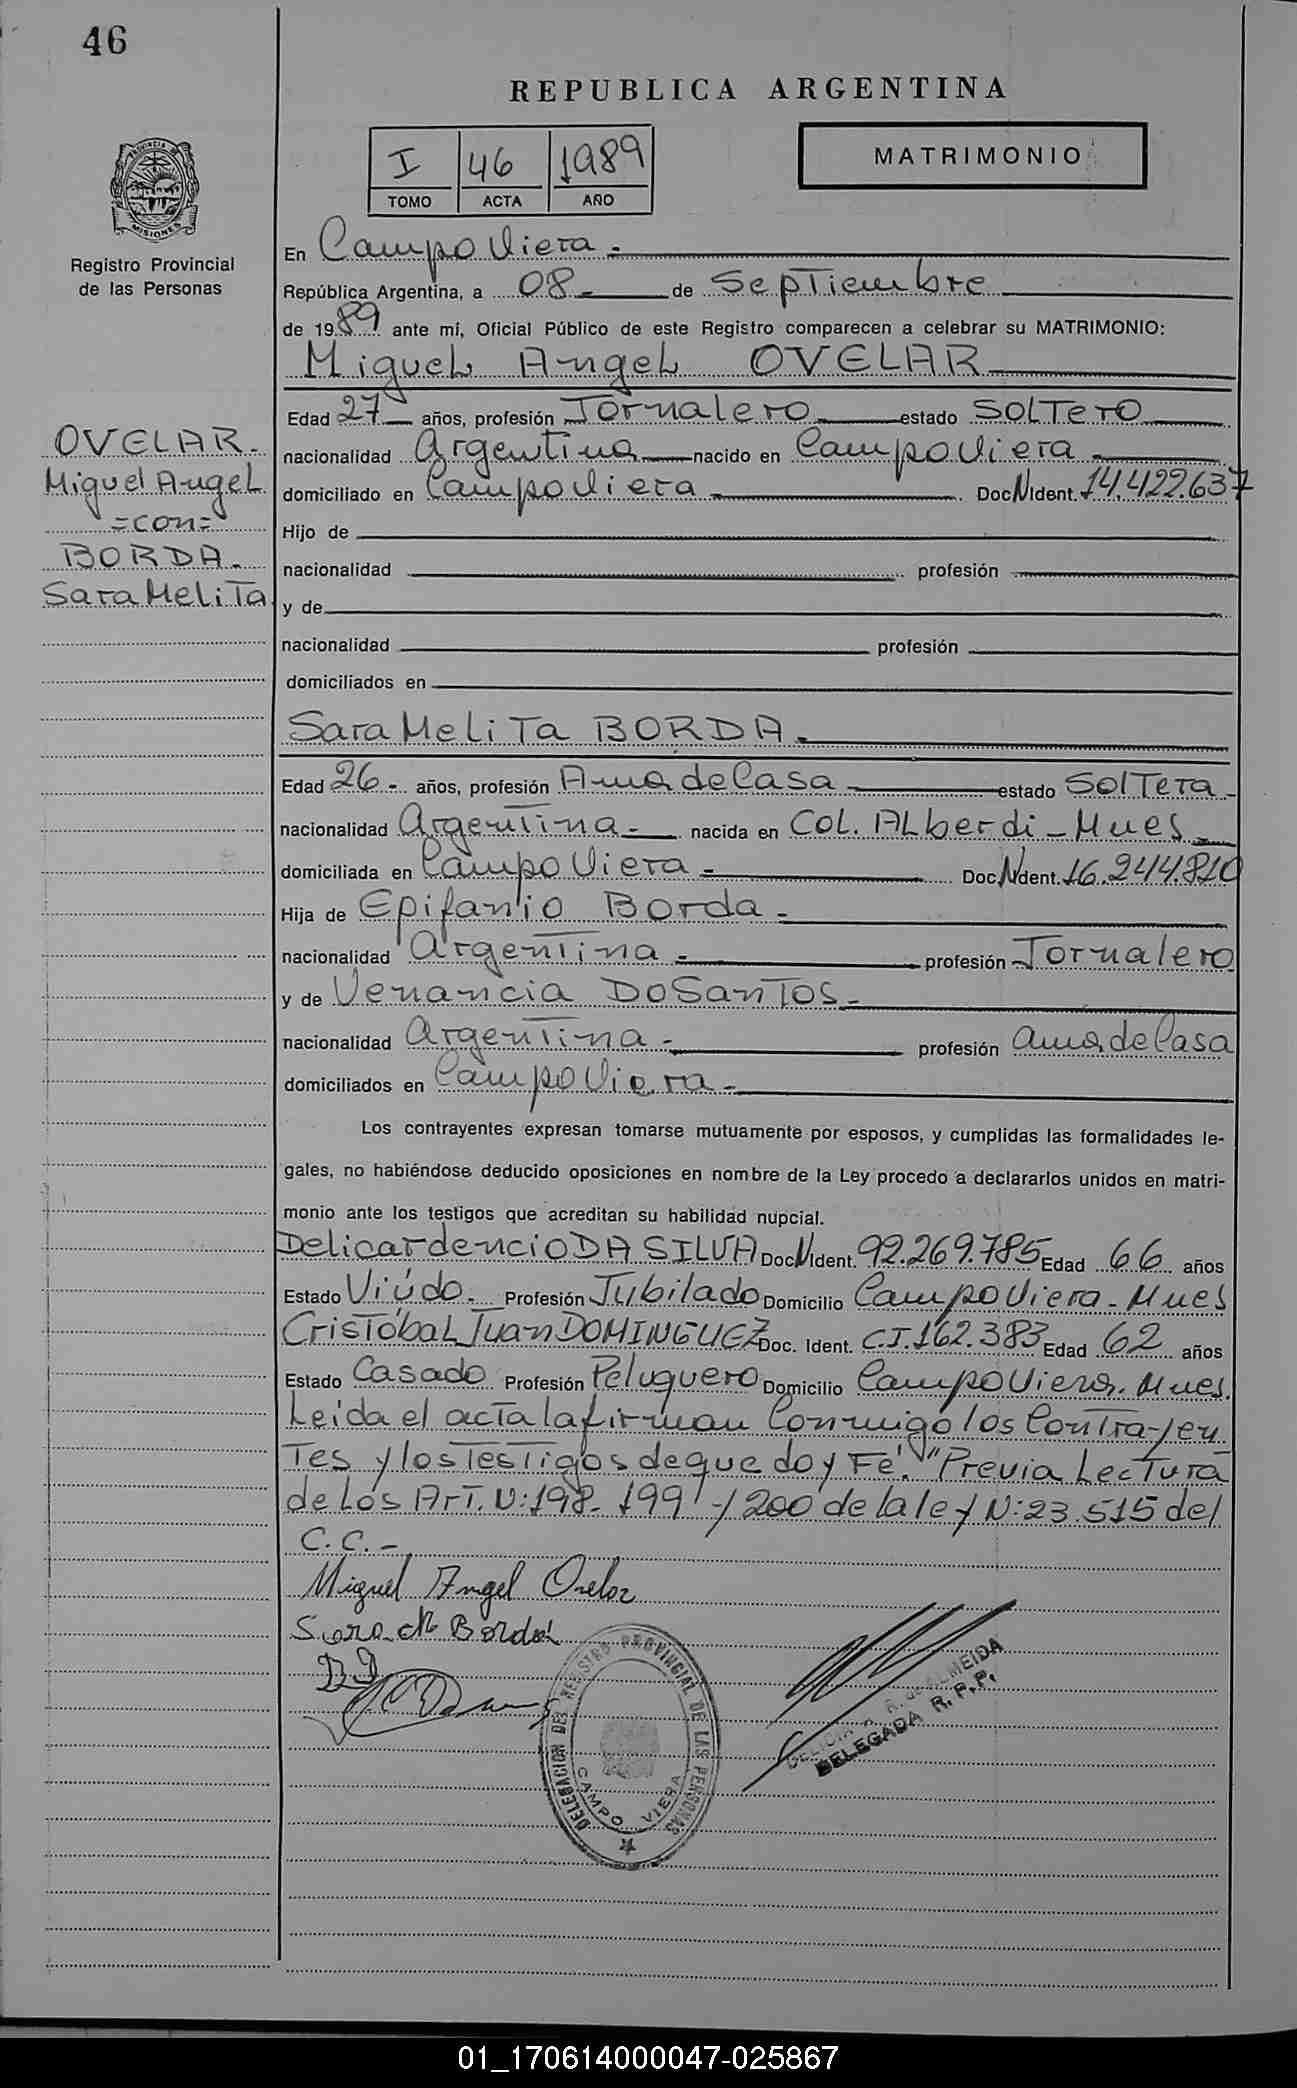 46
REPUBLICA ARGENTINA
I 46 1989
TOMO ACTA AÑO
MATRIMONIO
PROVINCIA DE MISIONES
Registro Provincial
de las Personas
OVELAR.
Miguel Angel
=con=
BORDA.
Sara Melita
En Campo Viera.-
República Argentina, a 08- de Septiembre
de 1989 ante mí, Oficial Público de este Registro comparecen a celebrar su MATRIMONIO:
Miguel Angel OVELAR
Edad 27 años, profesión Jornalero estado Soltero
nacionalidad Argentina nacido en Campo Viera
domiciliado en Campo Viera Doc N Ident. 14.422.637
Hijo de
nacionalidad profesión
y de
nacionalidad profesión
domiciliados en
Sara Melita BORDA.
Edad 26.- años, profesión Ama de Casa estado Soltera-
nacionalidad Argentina.- nacida en Col. Alberdi - Mnes
domiciliada en Campo Viera- Doc N Ident. 16.244.810
Hija de Epifanio Borda.-
nacionalidad Argentina.- profesión Jornalero
y de Venancia DoSantos.-
nacionalidad Argentina.- profesión ama de Casa
domiciliados en Campo Viera.-
Los contrayentes expresan tomarse mutuamente por esposos, y cumplidas las formalidades le-
gales, no habiéndose deducido oposiciones en nombre de la Ley procedo a declararlos unidos en matri-
monio ante los testigos que acreditan su habilidad nupcial.
Delicardencio DA SILVA Doc N Ident. 92.269.785 Edad 66 años
Estado Viúdo. Profesión Jubilado Domicilio Campo Viera. Mnes
Cristóbal Juan DOMINGUEZ Doc. Ident. C.I.162.383 Edad 62 años
Estado Casado Profesión Peluquero Domicilio Campo Viera. Mnes.
Leida el acta la firman Conmigo los Contrayen
tes y los Testigos de que doy Fé. "Previa Lectura
de los Art. N:198- 199 y 200 de la ley N:23.515 del
C.C.-
Miguel Angel Ovelar
Sara M Borda
DELEGACION DEL REGISTRO PROVINCIAL DE LAS PERSONAS
CAMPO VIERA
DELICIA R. de ALMEIDA
DELEGADA R.P.P.
01_170614000047-025867